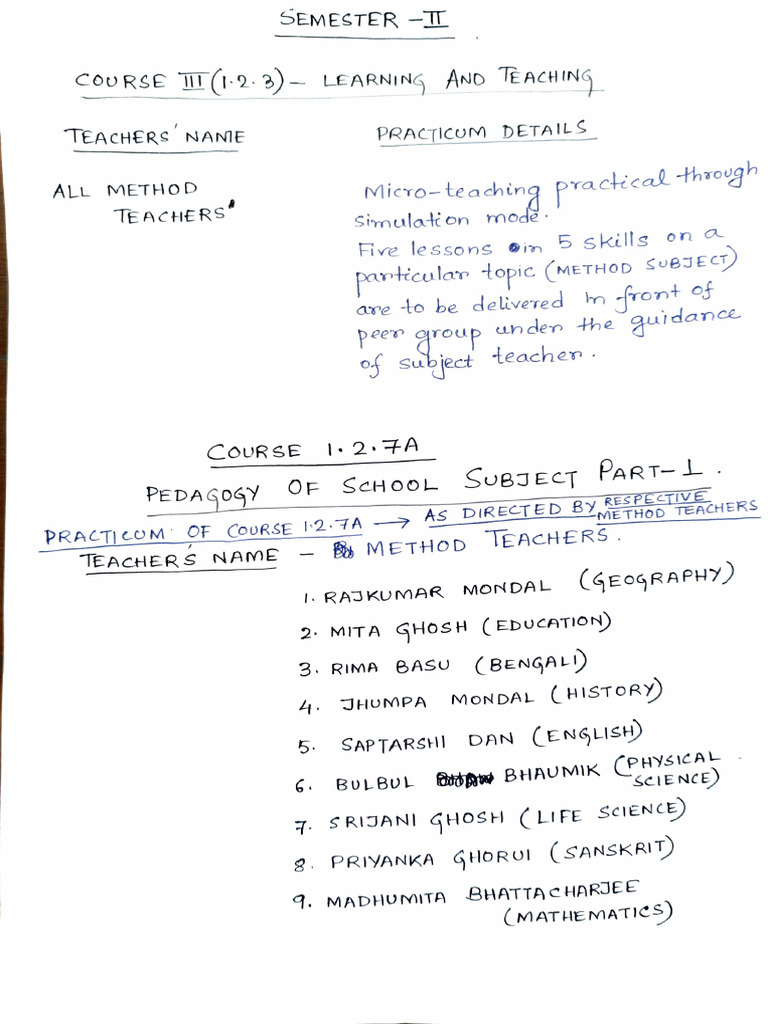 SEMESTER - II
COURSE III (1.2.3) - LEARNING AND TEACHING
TEACHERS' NAME
PRACTICUM DETAILS
ALL METHOD
TEACHERS'
Micro-teaching practical through
simulation mode.
Five lessons in 5 skills on a
particular topic (METHOD SUBJECT)
are to be delivered in front of
peer group under the guidance
of subject teacher.
COURSE 1.2.7A
PEDAGOGY OF SCHOOL SUBJECT PART-1.
PRACTICUM OF COURSE 1.2.7A → AS DIRECTED BY RESPECTIVE
METHOD TEACHERS
TEACHER'S NAME - METHOD TEACHERS.
1. RAJKUMAR MONDAL (GEOGRAPHY)
2. MITA GHOSH (EDUCATION)
3. RIMA BASU (BENGALI)
4. JHUMPA MONDAL (HISTORY)
5. SAPTARSHI DAN (ENGLISH)
6. BULBUL BHAUMIK (PHYSICAL
SCIENCE)
7. SRIJANI GHOSH (LIFE SCIENCE)
8. PRIYANKA GHORUI (SANSKRIT)
9. MADHUMITA BHATTACHARJEE
(MATHEMATICS)